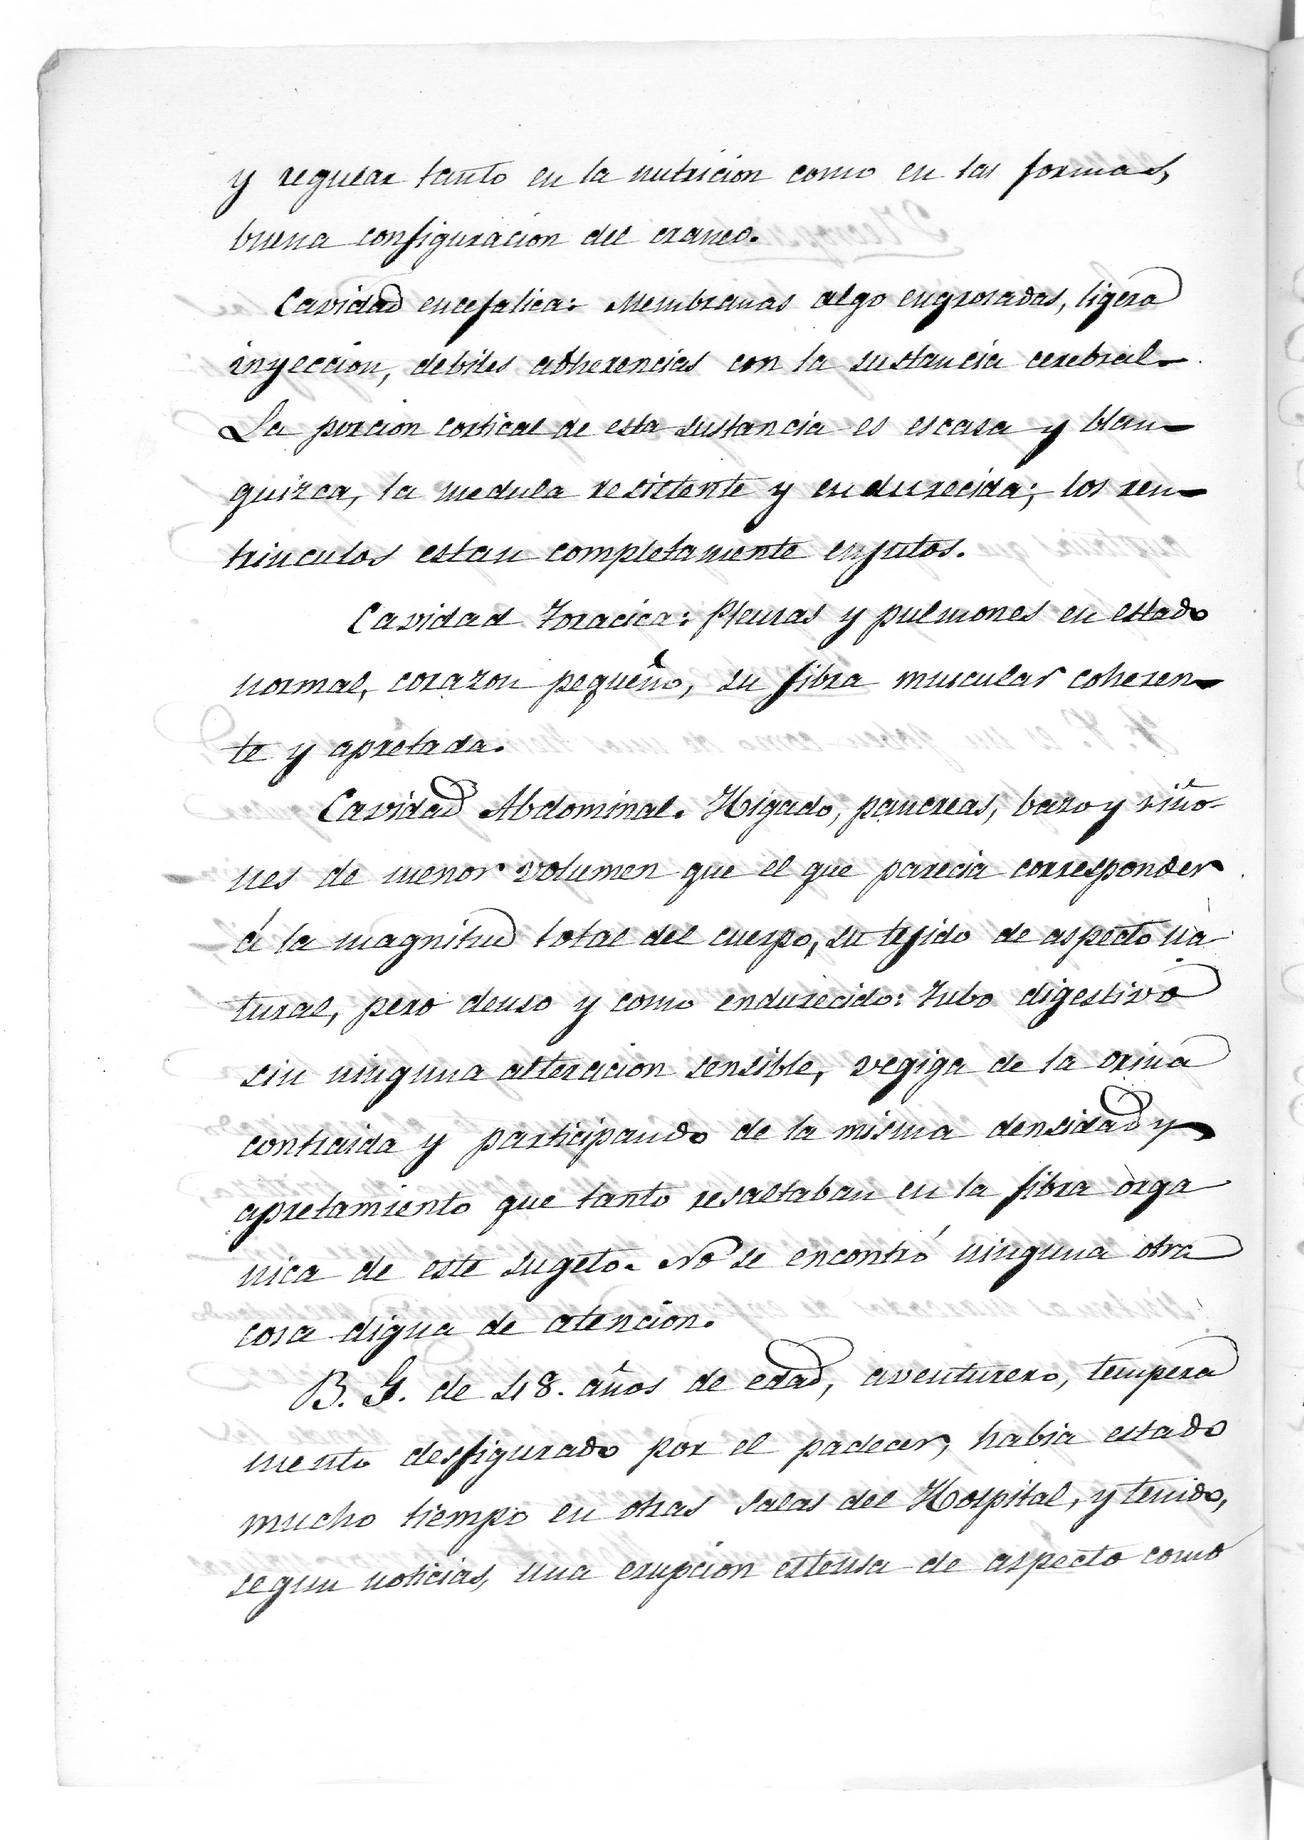 y regular tanto en la nutricion como en las formas,
buena configuracion del craneo.
Cavidad encefalica: Membranas algo engrosadas, ligera
inyeccion, debiles adherencias con la sustancia cerebral.
La porcion cortical de esta sustancia es escasa y blan-
quizca, la medula resistente y endurecida; los ven-
triculos estan completamente enjutos.
Cavidad Toracica: Pleuras y pulmones en estado
normal, corazon pequeño, su fibra muscular coheren-
te y apretada.
Cavidad Abdominal. Higado, pancreas, bazo y riño-
nes de menor volumen que el que parecia corresponder
á la magnitud total del cuerpo, su tejido de aspecto na
tural, pero denso y como endurecido: Tubo digestivo
sin ninguna alteracion sensible, vegiga de la orina
contraida y participando de la misma densidad y
apretamiento que tanto resaltaban en la fibra orga
nica de este sugeto. No se encontró ninguna otra
cosa digna de atencion.
B. G. de 48. años de edad, aventurero, tempera
mento desfigurado por el padecer, habia estado
mucho tiempo en otras salas del Hospital, y tenido,
segun noticias, una erupcion estensa de aspecto como